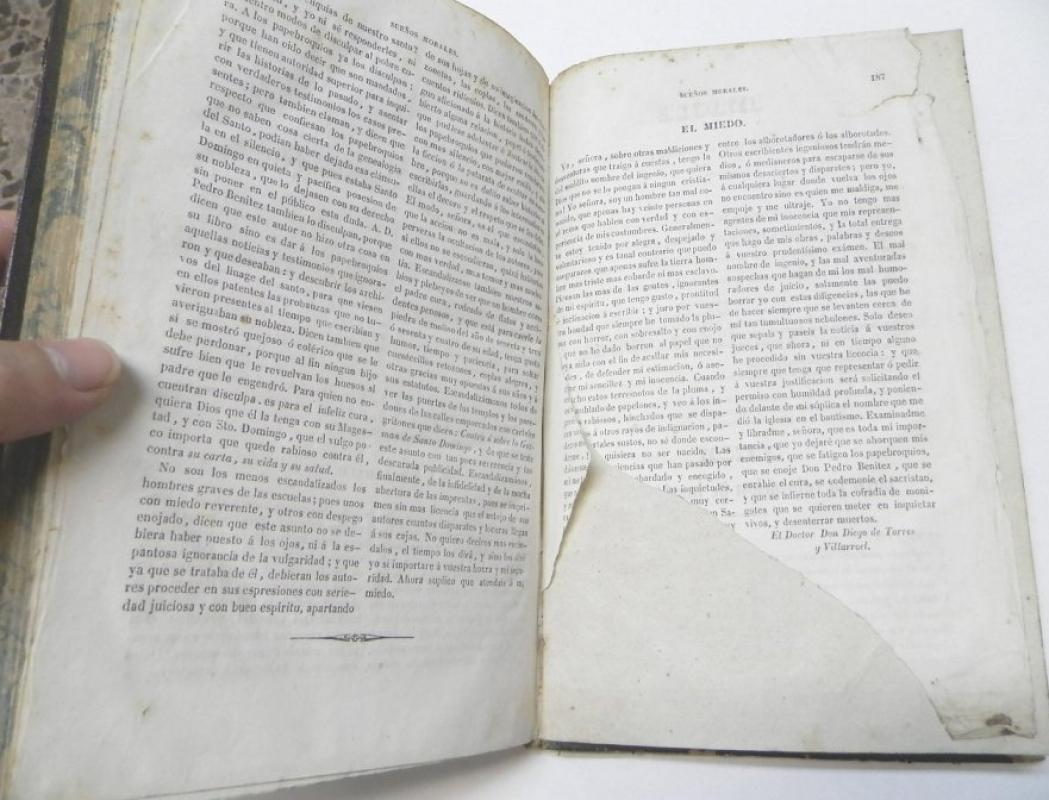 SUEÑOS MORALES.
nquias de nuestro santo?
, y yo ni sé responderles, ni
entro modos de disculpar al pobre cu-
ra. A los papebroquios ya los disculpas;
porque han oido decir que son mandados,
y que tienen autoridad superior para inqui-
rir las historias de lo pasado, y asentar
con verdaderos testimonios los casos pre-
sentes; pero tambien claman, y dicen que
respecto que confiesan los papebroquios
que no saben cosa cierta de la genealogía
del Santo, podian haber dejado esa clámu-
la en el silencio, y que pues estaba Santo
Domingo en quieta y pacífica posesion de
su nobleza, que lo dejasen con su derecho
sin poner en el público esta duda. A D.
Pedro Benitez tambien lo disculpan, porque
dicen que este autor no hizo otra cosa en
su libro sino es dar á los papebroquios
aquellas noticias y testimonios que ignora-
ron y que deseaban; y descubrir los archi-
vos del linage del santo, para que viesen
en ellos patentes las probanzas que no tu-
vieron presentes al tiempo que escribian y
averiguaban su nobleza. Dicen tambien que
si se mostró quejoso ó colérico que se le
debe perdonar, porque al fin ningun hijo
sufre bien que le revuelvan los huesos al
padre que le engendró. Para quien no en-
cuentran disculpa, es para el infeliz cura,
quiera Dios que él la tenga con su Mages-
tad, y con Sto. Domingo, que el vulgo po-
co importa que quede rabioso contra él,
contra su carta, su vida y su salud.
No son los menos escandalizados los
hombres graves de las escuelas; pues unos
con miedo reverente, y otros con despego
enojado, dicen que este asunto no se de-
biera haber puesto á los ojos, ni á la es-
pantosa ignorancia de la vulgaridad; y que
ya que se trataba de él, debieran los auto-
res proceder en sus espresiones con serie-
dad juiciosa y con buen espíritu, apartando
de sus hojas y de su
zonetas, las coplas, los
cuentos ridículos. Dicen tambien
guo aficionado á la historia
bierto alguna relacion, y
que pudiese adelantar ó ilustrar
los papebroquios que pudieran
con mas silencio, con mejor estilo
la ficcion ó la patarata de
bre, porque no es delito saber
escribirlas, guardando á los interesados
el decoro y el respeto que se les debe.
El modo, señora, es el que escandaliza,
que la accion no es mala, y solo la
perversa la ocultacion de los autores, pues
si ellos no se ocultaran, quizá hubieran
con mas verdad, mas temor y mas
tia. Escandalizase tambien nuestros
bios y plebeyos de ver que un hombre como
el padre cura, rodeado de flatos y acci-
dentes penosos, y que está para caerle la
piedra de molino del año de sesenta y tres
ó sesenta y cuatro de su edad, tenga gusto,
humor, tiempo y paciencia, para soltar
cuentecillos retozones, coplas alegres, y
otras gracias muy opuestas á sus años y á
sus estatutos. Escandalizámonos todos de
ver las puertas de los templos y los pare-
dones de las calles emporcados con carteles
gritones que dicen: Contra ó sobre la Guz-
man de Santo Domingo, y de que se trate
este asunto con tan poca reverencia y tan
descarada publicidad. Escandalizámonos,
finalmente, de la infidelidad y de la mucha
abertura de las imprentas, pues se impri-
men sin mas licencia que el antojo de sus
autores cuantos disparates y locuras llegan
á sus cajas. No quiero deciros mas escán-
dalos, el tiempo los dirá, y sino los diré
yo si importare á vuestra honra y mi segu-
ridad. Ahora suplico que atendais á mi
miedo.
SUEÑOS MORALES.
187
EL MIEDO.
Yo, señora, sobre otras maldiciones y
desventuras que traigo á cuestas, tengo la
del maldito nombre del ingenio, que quiera
Dios que no se lo pongan á ningun cristia-
no! Yo señora, soy un hombre tan mal co-
nocido, que apenas hay veinte personas en
el reino que hablen con verdad y con es-
periencia de mis costumbres. Generalmen-
te estoy tenido por alegre, despejado y
voluntarioso y es tanal contrario que puedo
aseguraros que apenas sufre la tierra hom-
bre mas triste mas cobarde ni mas esclavo.
Piensan las mas de las gentes, ignorantes
de mi espíritu, que tengo gusto, prontitud
é inclinacion á escribir; y juro por vues-
tra bondad que siempre he tomado la plu-
ma con horror, con sobresalto y con enojo
que no he dado borron al papel que no
aya sido con el fin de acallar mis necesi-
des, de defender mi estimacion, ó ase-
mi sencillez y mi inocencia. Cuando
cucho estos terremotos de la pluma, y
nublado de papelones, y veo á los in-
rabiosos, hinchados que se dispa-
s á otros rayos de indignacion, pa-
rtales sustos, no sé donde escon-
quisiera no ser nacido. Las
lencias que han pasado por
obardado y encogido,
Las inquietudes,
muy cer-
n Sa-
entre los alborotadores ó los alborotados.
Otros escribientes ingeniosos tendrán me-
dios, ó medianeros para escaparse de sus
mismos desaciertos y disparates; pero yo,
á cualquiera lugar donde vuelva los ojos
no encuentro sino es quien me maldiga, me
empuje y me ultraje. Yo no tengo mas
agentes de mi inocencia que mis represen-
taciones, sometimientos, y la total entrega
que hago de mis obras, palabras y deseos
á vuestro prudentísimo exámen. El mal
nombre de ingenio, y las mal aventuradas
sospechas que hagan de mi los mal humo-
radores de juicio, solamente las puedo
borrar yo con estas diligencias, las que he
de hacer siempre que se levanten cerca de
mí tan tumultuosos nebulones. Solo deseo
que sepais y paseis la noticia á vuestros
jueces, que ahora, ni en tiempo alguno
he procedido sin vuestra licencia: y que
siempre que tenga que representar ó pedir
á vuestra justificacion será solicitando el
permiso con humildad profunda, y ponien-
do delante de mi súplica el nombre que me
dió la iglesia en el bautismo. Examinadme
y libradme, señora, que es toda mi impor-
tancia, que yo dejaré que se ahorquen mis
enemigos, que se fatigen los papebroquios,
que se enoje Don Pedro Benitez, que se
enrabie el cura, se endemonie el sacristan,
y que se infierne toda la cofradía de moni-
gotes que se quieren meter en inquietar
vivos, y desenterrar muertos.
El Doctor Don Diego de Torres
y Villarroel.